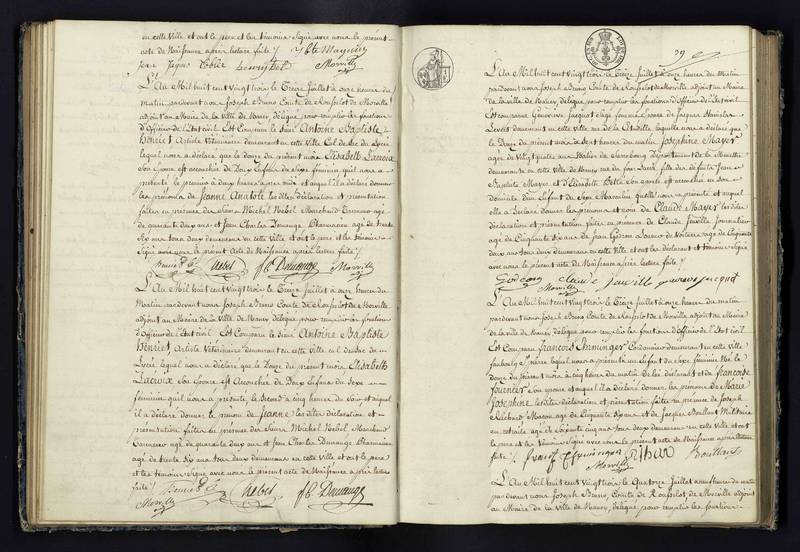 en cette Ville et ont le père et les témoins signé avec nous le présent
acte de Naissance après lecture faite /.
Jean Jaques
Morville
L'An Mil huit cent Vingt trois le Treize Juillet à onze heures du
matin pardevant nous Joseph Bruno Comte de Rousselot de Morville
adjoint au Maire de la Ville de Nancy, délégué pour remplir les fonctions
d'Officier de l'Etat civil. Est Comparu le Sieur Antoine Baptiste
henriet Artiste Vétérinaire demeurant en cette Ville Cul de Sac du Lycée
lequel nous a déclaré que le Douze du présent mois Elisabeth Lacroix
Son Epouse est accouchée de Deux Enfans du Sexe féminin, qu'il nous a
présenté le premier à deux heures après midi et auquel il a déclaré donner
les prénoms de Jeanne Anatole les dites déclaration et présentation
faites en présence des Sieurs Michel Hebel Marchand Tanneur âgé
de quarante deux ans et Jean Charles Demange Pharmacien âgé de trente
Six ans tous deux demeurans en cette Ville et ont le père et les témoins
Signé avec nous le présent Acte de Naissance après lecture faite /.
hebel Demange Morville
L'An Mil huit cent Vingt trois le Treize Juillet à onze heures du
Matin pardevant nous Joseph Bruno Comte de Rousselot de Morville
adjoint au Maire de la Ville de Nancy délégué pour remplir les fonctions
d'Officier de l'Etat civil. Est Comparu le Sieur Antoine Baptiste
henriet, Artiste Vétérinaire demeurant en cette Ville cul de sac du
Lycée lequel nous a déclaré que le Douze du présent mois Elisabeth
Lacroix Son Epouse est Accouchée de Deux Enfans du Sexe
féminin qu'il nous a présenté, le second à cinq heures du Soir et auquel
il a déclaré donner le prénom de Jeanne les dites déclaration et
présentation faites en présence des Sieurs Michel Hebel, Marchand
Tanneur âgé de quarante deux ans et Jean Charles Demange Pharmacien
âgé de trente Six ans tous deux demeurans en cette Ville et ont le père
et les témoins Signé avec nous le présent Acte de Naissance après lecture
faite /.
Morville hebel Demange
39
L'An Mil huit cent Vingt trois le Treize Juillet à onze heures du Matin
pardevant nous Joseph Bruno Comte de Rousselot de Morville adjoint au Maire
de la ville de Nancy, délégué pour remplir les fonctions d'Officier de l'Etat civil
Est comparue Geneviève Jacquot
demeurant en cette Ville rue de la Citadelle laquelle nous a déclaré que
le Douze du présent mois à sept heures du matin Josephine Mayer
âgée de Vingt quatre ans Native de Sarrebourg Département de la Meurthe
demeurante en cette Ville de Nancy fille de Jean
Baptiste Mayer et d'Elisabeth est accouchée en son
domicile d'un Enfant du Sexe Masculin qu'elle nous a présenté et auquel
elle a Déclaré donner les prénom et nom de Claude Mayer les dites
déclaration et présentation faites en présence de Claude Journalier
âgé de Cinquante Six ans et de Jean Godcon de Cinquante
deux ans tous deux demeurans en cette Ville et ont les déclarant et témoins Signé
avec nous le présent acte de Naissance après lecture faite /.
Godcon Claude
Morville
L'An Mil huit cent Vingt trois le Treize Juillet à onze heures du matin
pardevant nous Joseph Bruno Comte de Rousselot de Morville adjoint au Maire
de la ville de Nancy délégué pour remplir les fonctions d'Officier de l'Etat civil
Est Comparu françois Cordonnier demeurant en cette Ville
faubourg St Pierre lequel nous a présenté un Enfant du Sexe féminin Né le
douze du présent mois à cinq heures du matin de lui déclarant et de françoise
fournier Son Epouse et auquel il a déclaré donner les prénoms de Marie
Josephine les dites déclaration et présentation faites en présence de Joseph
Richard Maçon âgé de Cinquante Six ans et de Jacques Bouillard Militaire
en retraite âgé de soixante cinq ans tous deux demeurans en cette ville et ont
le père et les témoins Signé avec nous le présent acte de Naissance après lecture
faite /.
Morville
L'An Mil huit cent Vingt trois le Quatorze Juillet à onze heures du matin
pardevant nous Joseph Bruno Comte de Rousselot de Morville adjoint
au Maire de la ville de Nancy, délégué pour remplir les fonctions